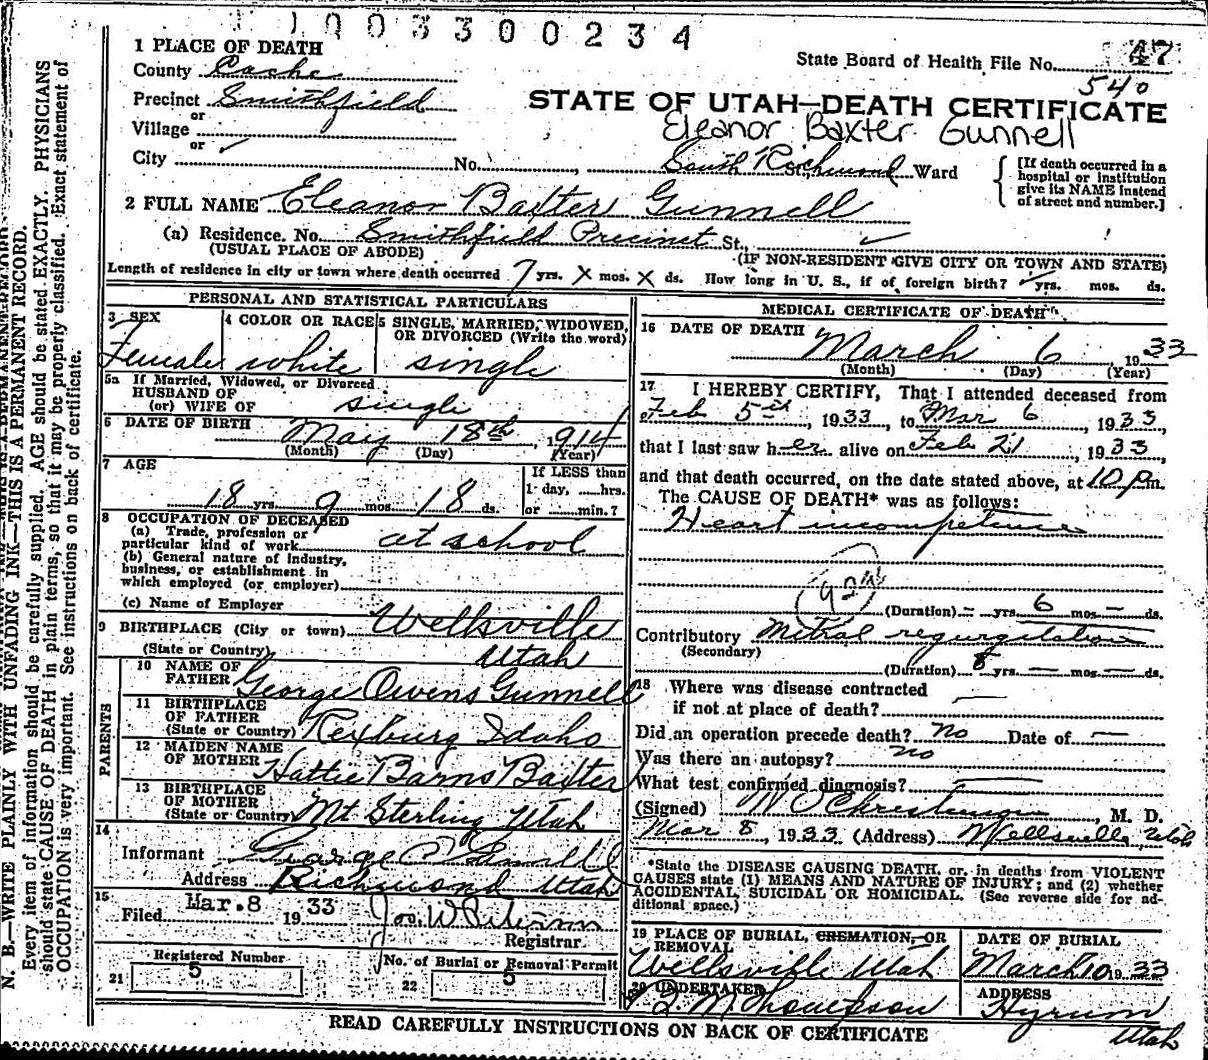 1003300234
1 PLACE OF DEATH
County Cache
State Board of Health File No. 47
540
Precinct Smithfield
STATE OF UTAH—DEATH CERTIFICATE
or
Village
Eleanor Baxter Gunnell
or
City No. South Richmond St. Ward
[If death occurred in a
hospital or institution
give its NAME instead
of street and number.]
2 FULL NAME Eleanor Baxter Gunnell
(a) Residence, No. Smithfield Precinct St.,
(USUAL PLACE OF ABODE) (IF NON-RESIDENT GIVE CITY OR TOWN AND STATE)
Length of residence in city or town where death occurred 7 yrs. X mos. X ds. How long in U. S., if of foreign birth? yrs. mos. ds.
PERSONAL AND STATISTICAL PARTICULARS
3 SEX
Female
4 COLOR OR RACE
white
5 SINGLE, MARRIED, WIDOWED,
OR DIVORCED (Write the word)
single
5a If Married, Widowed, or Divorced
HUSBAND OF
(or) WIFE OF single
6 DATE OF BIRTH May 18th, 1914
(Month) (Day) (Year)
7 AGE
18 yrs. 9 mos. 18 ds.
If LESS than
1 day, hrs.
or min.?
8 OCCUPATION OF DECEASED
(a) Trade, profession or
particular kind of work at school
(b) General nature of industry,
business, or establishment in
which employed (or employer)
(c) Name of Employer
9 BIRTHPLACE (City or town) Wellsville
(State or Country) Utah
PARENTS
10 NAME OF
FATHER George Owens Gunnell
11 BIRTHPLACE
OF FATHER
(State or Country) Rexburg Idaho
12 MAIDEN NAME
OF MOTHER Hattie Barns Baxter
13 BIRTHPLACE
OF MOTHER
(State or Country) Mt Sterling Utah
14
Informant George O Gunnell
Address Richmond Utah
15
Filed Mar. 8 1933
Registrar
Registered Number
21 5
No. of Burial or Removal Permit
22 5
MEDICAL CERTIFICATE OF DEATH
16 DATE OF DEATH
March 6, 1933
(Month) (Day) (Year)
17 I HEREBY CERTIFY, That I attended deceased from
Feb 5th, 1933, to Mar 6, 1933,
that I last saw her alive on Feb 21, 1933,
and that death occurred, on the date stated above, at 10 p.m.
The CAUSE OF DEATH* was as follows:
Heart incompetence
92a
(Duration) — yrs. 6 mos. — ds.
Contributory Mitral regurgitation
(Secondary)
(Duration) 8 yrs. — mos. — ds.
18 Where was disease contracted
if not at place of death? —
Did an operation precede death? No Date of —
Was there an autopsy? no
What test confirmed diagnosis? —
(Signed) W O Christensen, M. D.
Mar 8, 1933 (Address) Wellsville Utah
*State the DISEASE CAUSING DEATH, or, in deaths from VIOLENT
CAUSES state (1) MEANS AND NATURE OF INJURY; and (2) whether
ACCIDENTAL, SUICIDAL OR HOMICIDAL. (See reverse side for ad-
ditional space.)
19 PLACE OF BURIAL, CREMATION, OR
REMOVAL
Wellsville Utah
DATE OF BURIAL
March 10 1933
20 UNDERTAKER
Q. M. Thompson
ADDRESS
Hyrum
Utah
READ CAREFULLY INSTRUCTIONS ON BACK OF CERTIFICATE
N. B.—WRITE PLAINLY WITH UNFADING INK—THIS IS A PERMANENT RECORD.
Every item of information should be carefully supplied. AGE should be stated EXACTLY. PHYSICIANS
should state CAUSE OF DEATH in plain terms, so that it may be properly classified. Exact statement of
OCCUPATION is very important. See instructions on back of certificate.